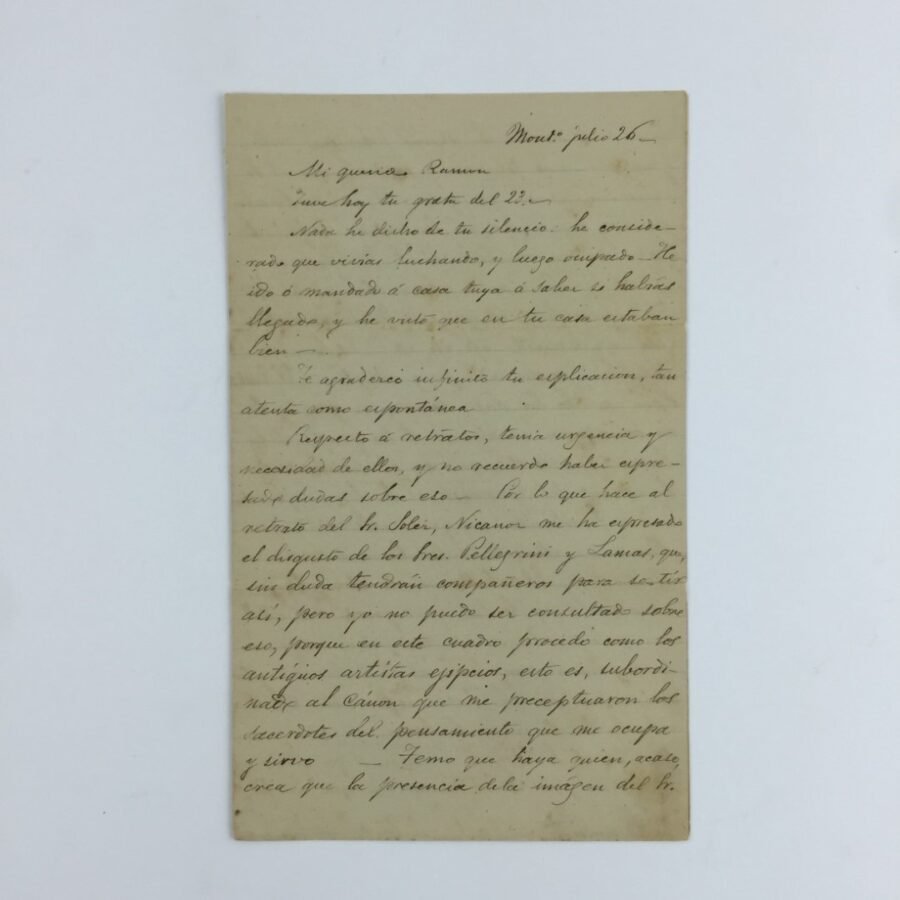 Montº julio 26
Mi querido Ramon
Tuve hoy tu grata del 23.
Nada he dicho de tu silencio: he conside-
rado que vivias luchando, y luego ocupado - He
ido ó mandado á casa tuya á saber si habias
llegado, y he visto que en tu casa estaban
bien -
Te agradezco infinito tu esplicacion, tan
atenta como espontánea
Respecto á retratos, tenia urgencia y
necesidad de ellos, y no recuerdo haber espre-
sado dudas sobre eso - Por lo que hace al
retrato del Sr. Soler, Nicanor me ha espresado
el disgusto de los Sres. Pellegrini y Lamas, que,
sin duda tendrán compañeros para sentir
asi, pero yo no puedo ser consultado sobre
eso, porque en este cuadro procedo como los
antigüos artistas ejipcios, esto es, subordi-
nado al Cánon que me preceptuaron los
sacerdotes del pensamiento que me ocupa
y sirvo - Temo que haya quien, acaso,
crea que la presencia de la imágen del Sr.